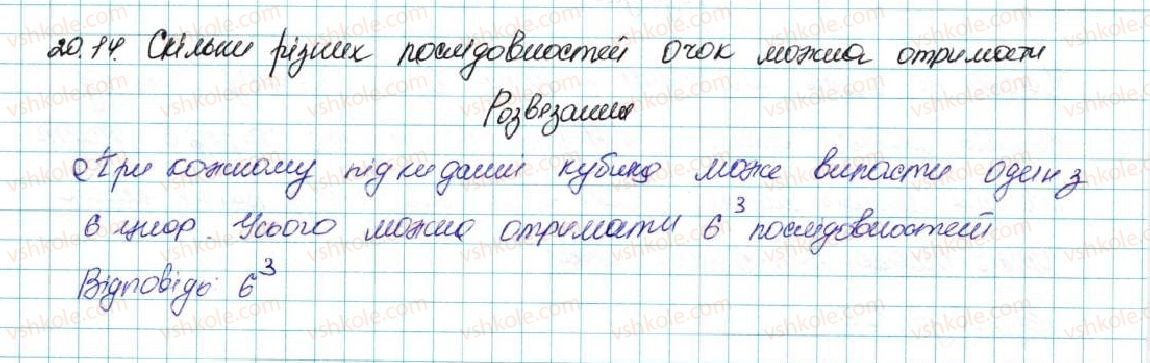 20.14. Скільки різних послідовностей очок можна отримати
Розв'язання
При кожному підкиданні кубика може випасти один з
6 цифр. Усього можна отримати 6³ послідовностей
Відповідь 6³